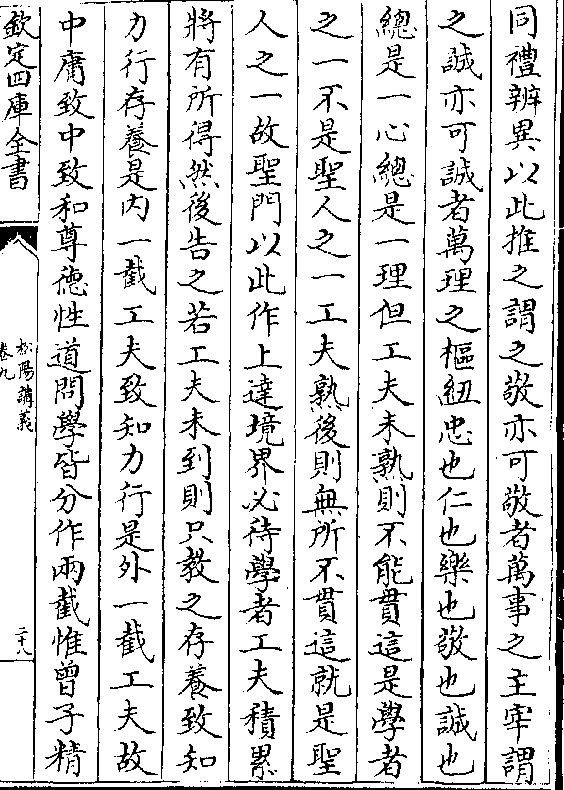 同禮辨異以此推之謂之敬亦可敬者萬事之主宰謂
之誠亦可誠者萬理之樞紐忠也仁也樂也敬也誠也
總是一心總是一理但工夫未熟則不能貫這是學者
之一不是聖人之一工夫熟後則無所不貫這就是聖
人之一故聖門以此作上達境界必待學者工夫積累
將有所得然後告之若工夫未到則只教之存養致知
力行存養是内一截工夫致知力行是外一截工夫故
中庸致中致和尊徳性道問學皆分作兩截惟曾子精
欽定四庫全書
松陽講義
卷九
二十八